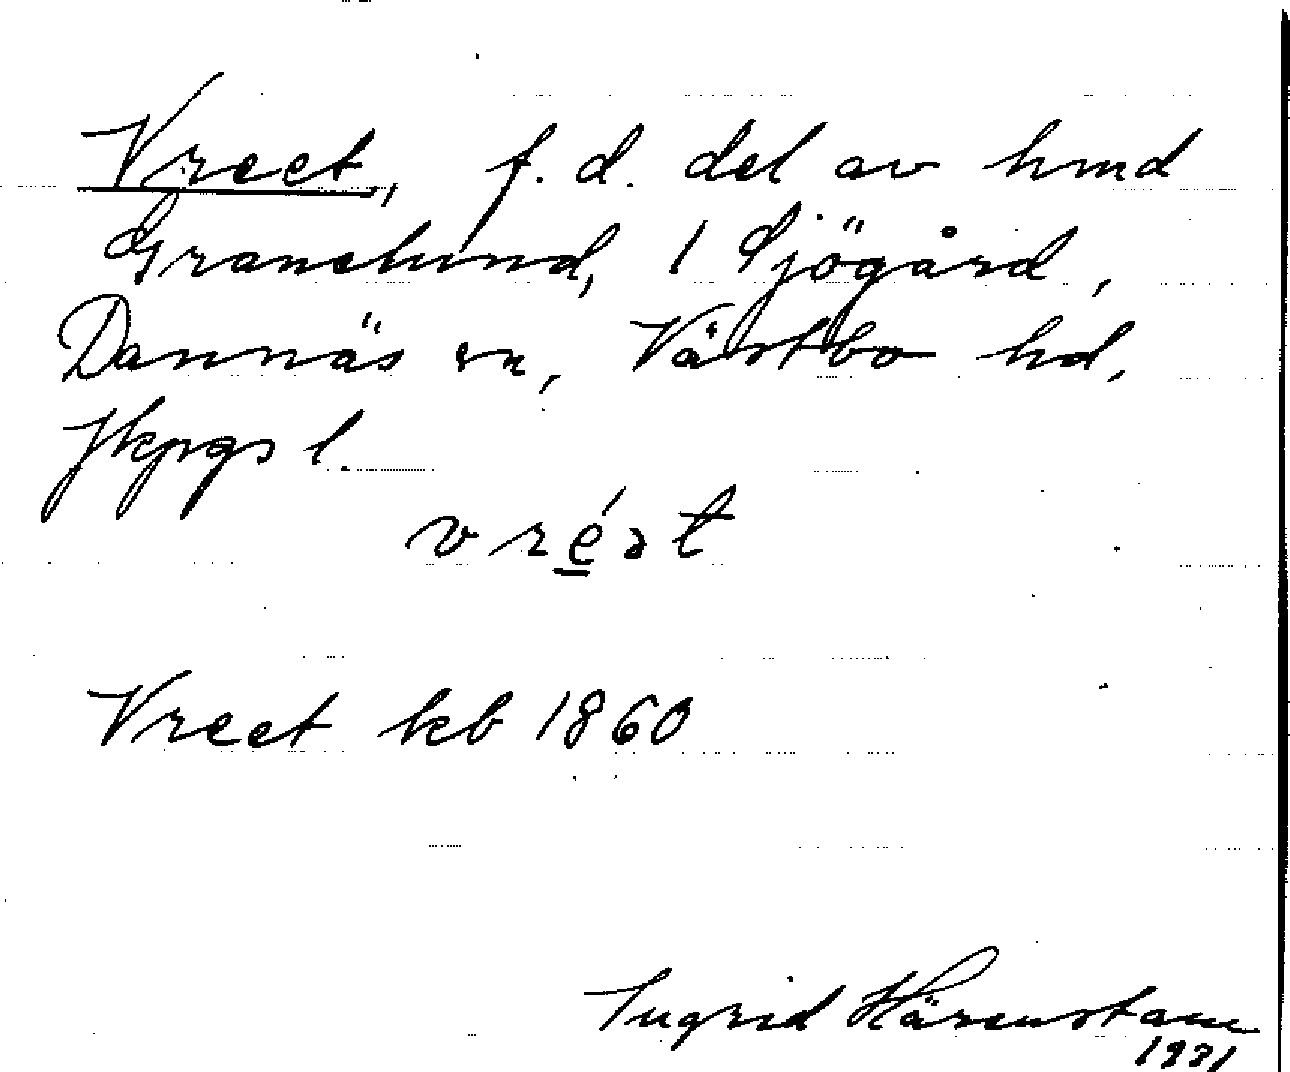 Vreet, f. d. del av hmd
Granelund, 1 Sjögård,
Dannäs sn, Västbo hd,
Jkpgs l.
vréat
Vreet kb 1860
Ingrid Härenstam
1931